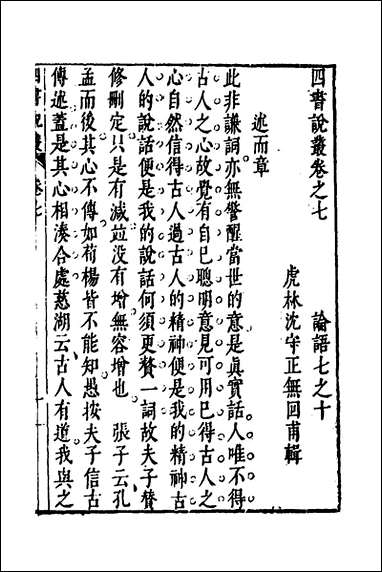 四書說叢卷之七　論語七之十
虎林沈守正無回甫輯
述而章
此非謙詞亦無警醒當世的意是真實話人唯不得
古人之心故覺有自己聰明意見可用巳得古人之
心自然信得古人過古人的精神便是我的精神古
人的說話便是我的說話何須更贅一詞故夫子贊
修刪定只是有減竝没有增無容增也　張子云孔
孟而後其心不傳如荀楊皆不能知愚按夫子信古
傳述蓋是其心相湊合處慈湖云古人有道我與之